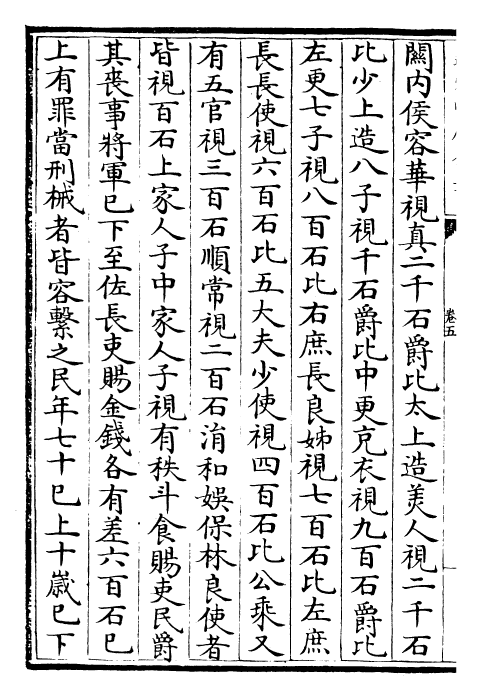 關内侯容華視真二千石爵比太上造美人視二千石
比少上造八子視千石爵比中更充衣視九百石爵比
左更七子視八百石比右庶長良姊視七百石比左庶
長長使視六百石比五大夫少使視四百石比公乘又
有五官視三百石順常視二百石涓和娯保林良使者
皆視百石上家人子中家人子視有秩斗食賜吏民爵
其喪事將軍已下至佐長吏賜金錢各有差六百石已
上有罪當刑械者皆容繫之民年七十已上十嵗已下
卷五